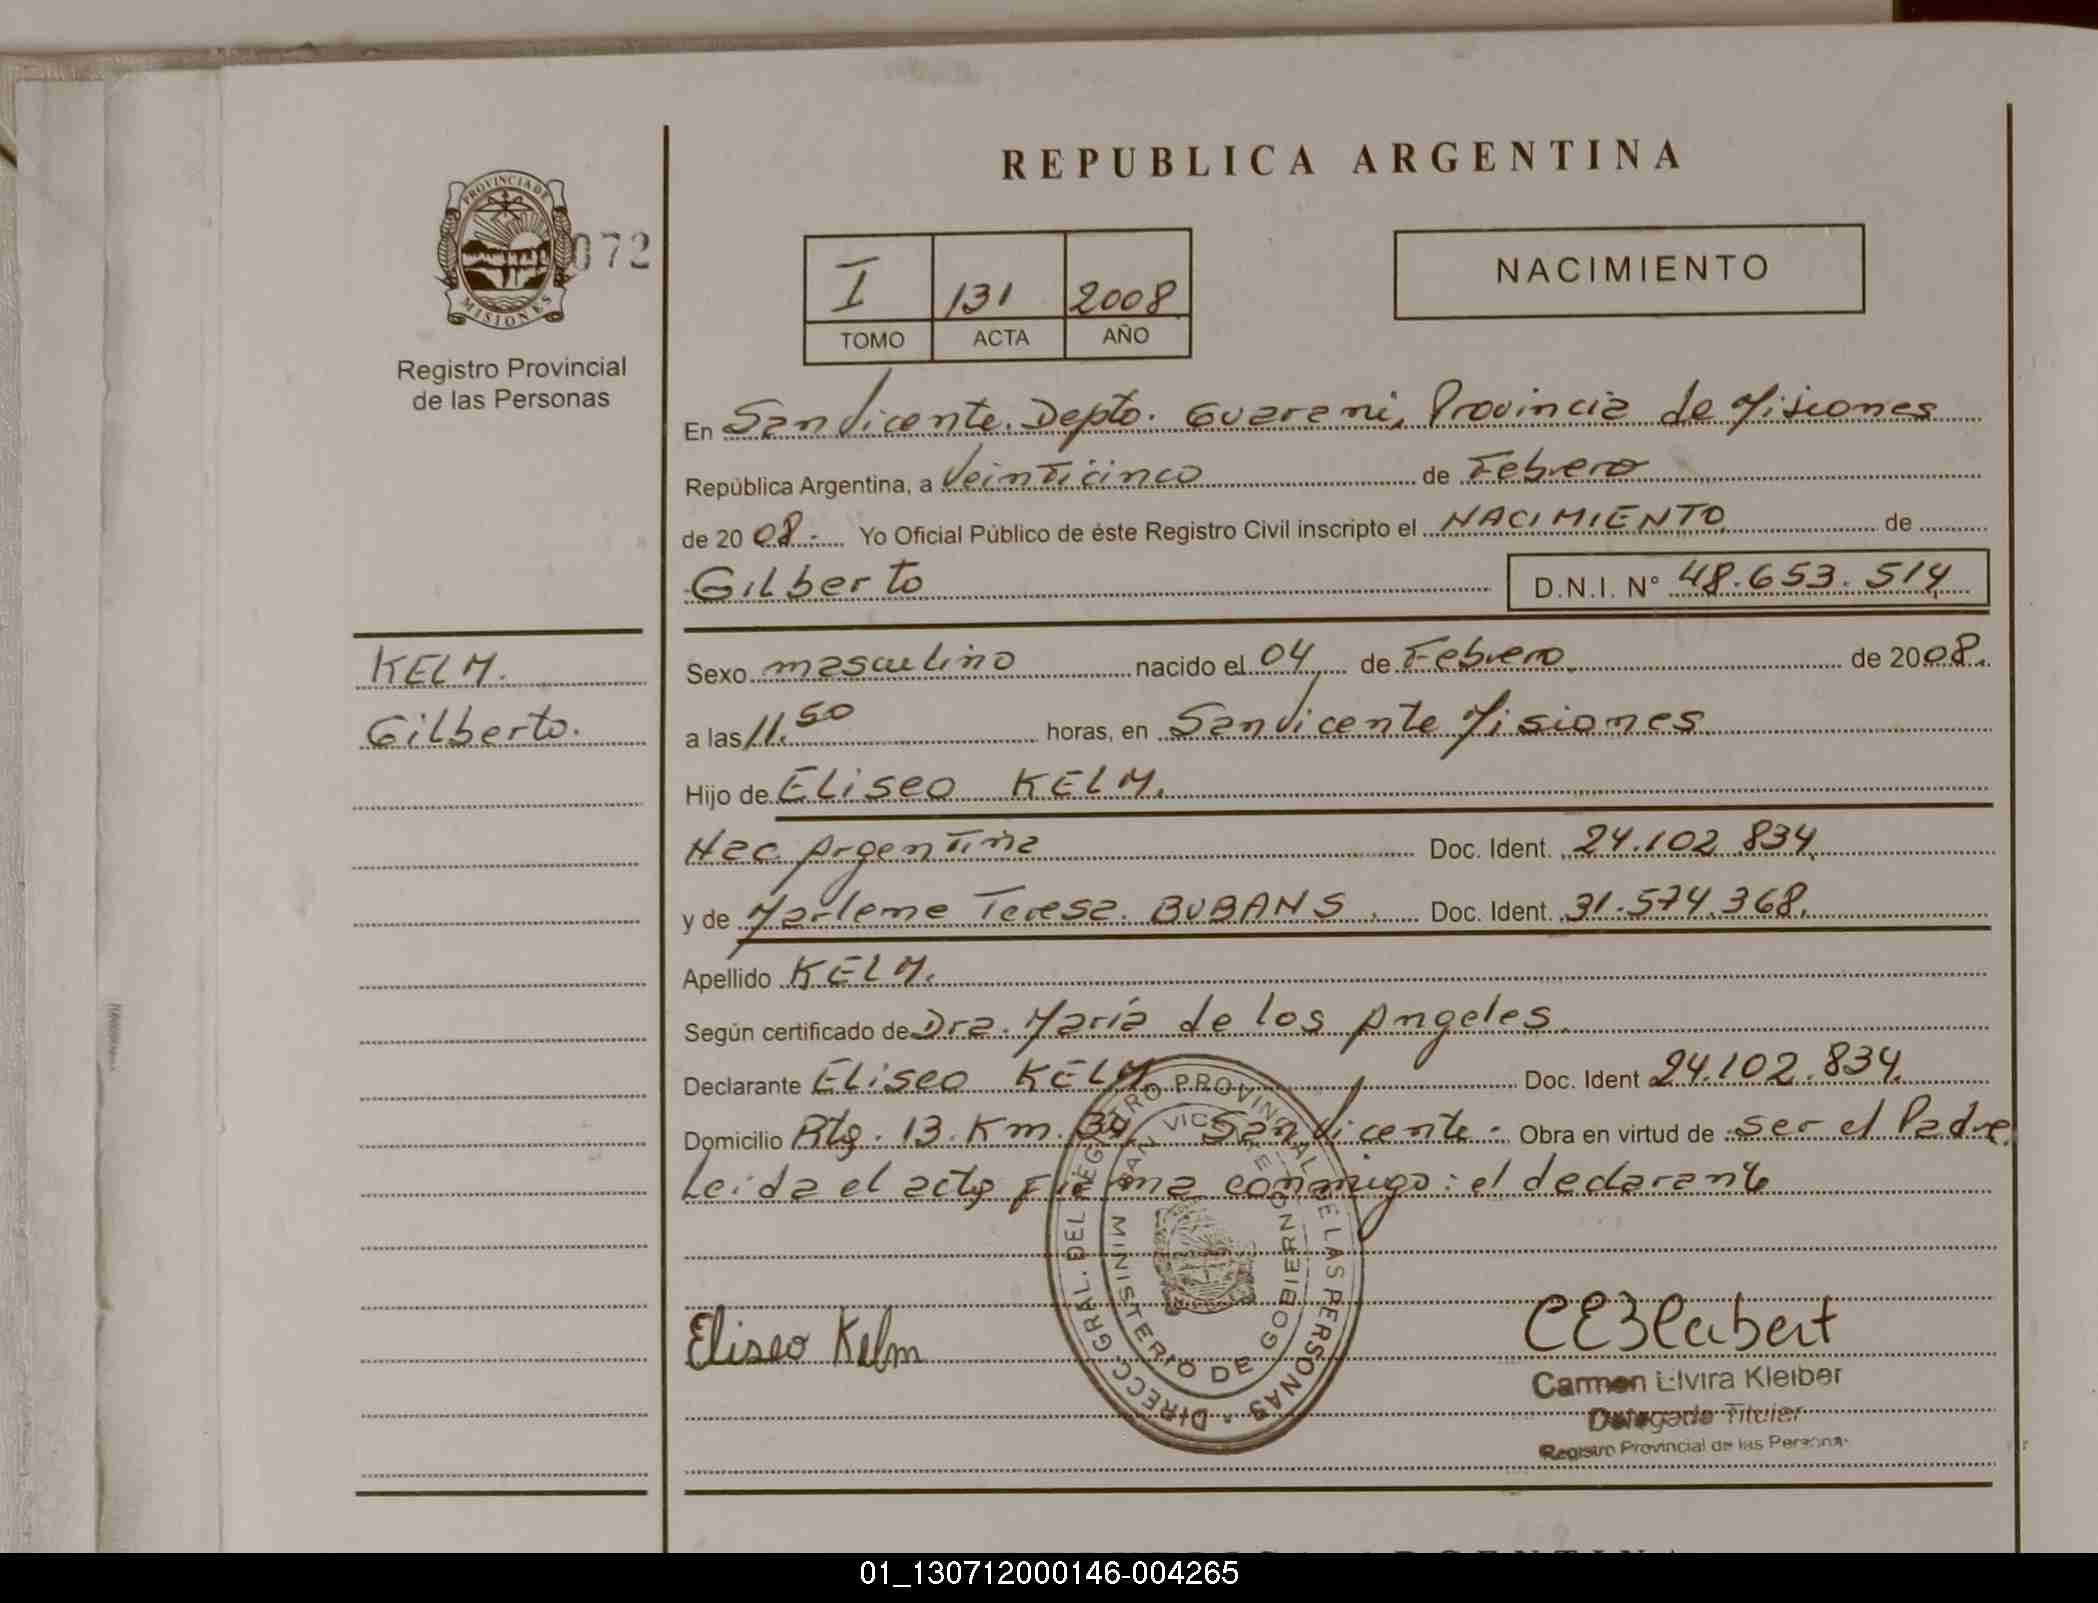 REPUBLICA ARGENTINA
PROVINCIA DE
MISIONES
072
Registro Provincial
de las Personas
I 131 2008
TOMO ACTA AÑO
NACIMIENTO
En San Vicente. Depto. Guarani, Provincia de Misiones
República Argentina, a Veinticinco de Febrero
de 20 08.- Yo Oficial Público de éste Registro Civil inscripto el NACIMIENTO de
Gilberto D.N.I. N° 48.653.514
KELM.
Gilberto.
Sexo masculino nacido el 04 de Febrero de 2008.
a las 11.50 horas, en San Vicente Misiones
Hijo de Eliseo KELM.
Nac. Argentina Doc. Ident. 24.102.834
y de Marlene Teresa BUBANS. Doc. Ident. 31.574.368.
Apellido KELM.
Según certificado de Dra. María de los Angeles
Declarante Eliseo KELM Doc. Ident 24.102.834.
Domicilio Rta. 13. Km. 34 San Vicente. Obra en virtud de ser el Padre
Leida el acta Firma conmigo: el declarante
DIRECC. GRAL. DEL REGISTRO PROVINCIAL DE LAS PERSONAS
MINISTERIO DE GOBIERNO
SAN VICENTE
Eliseo Kelm
Carmen Elvira Kleiber
Delegada Titular
Registro Provincial de las Personas
01_130712000146-004265